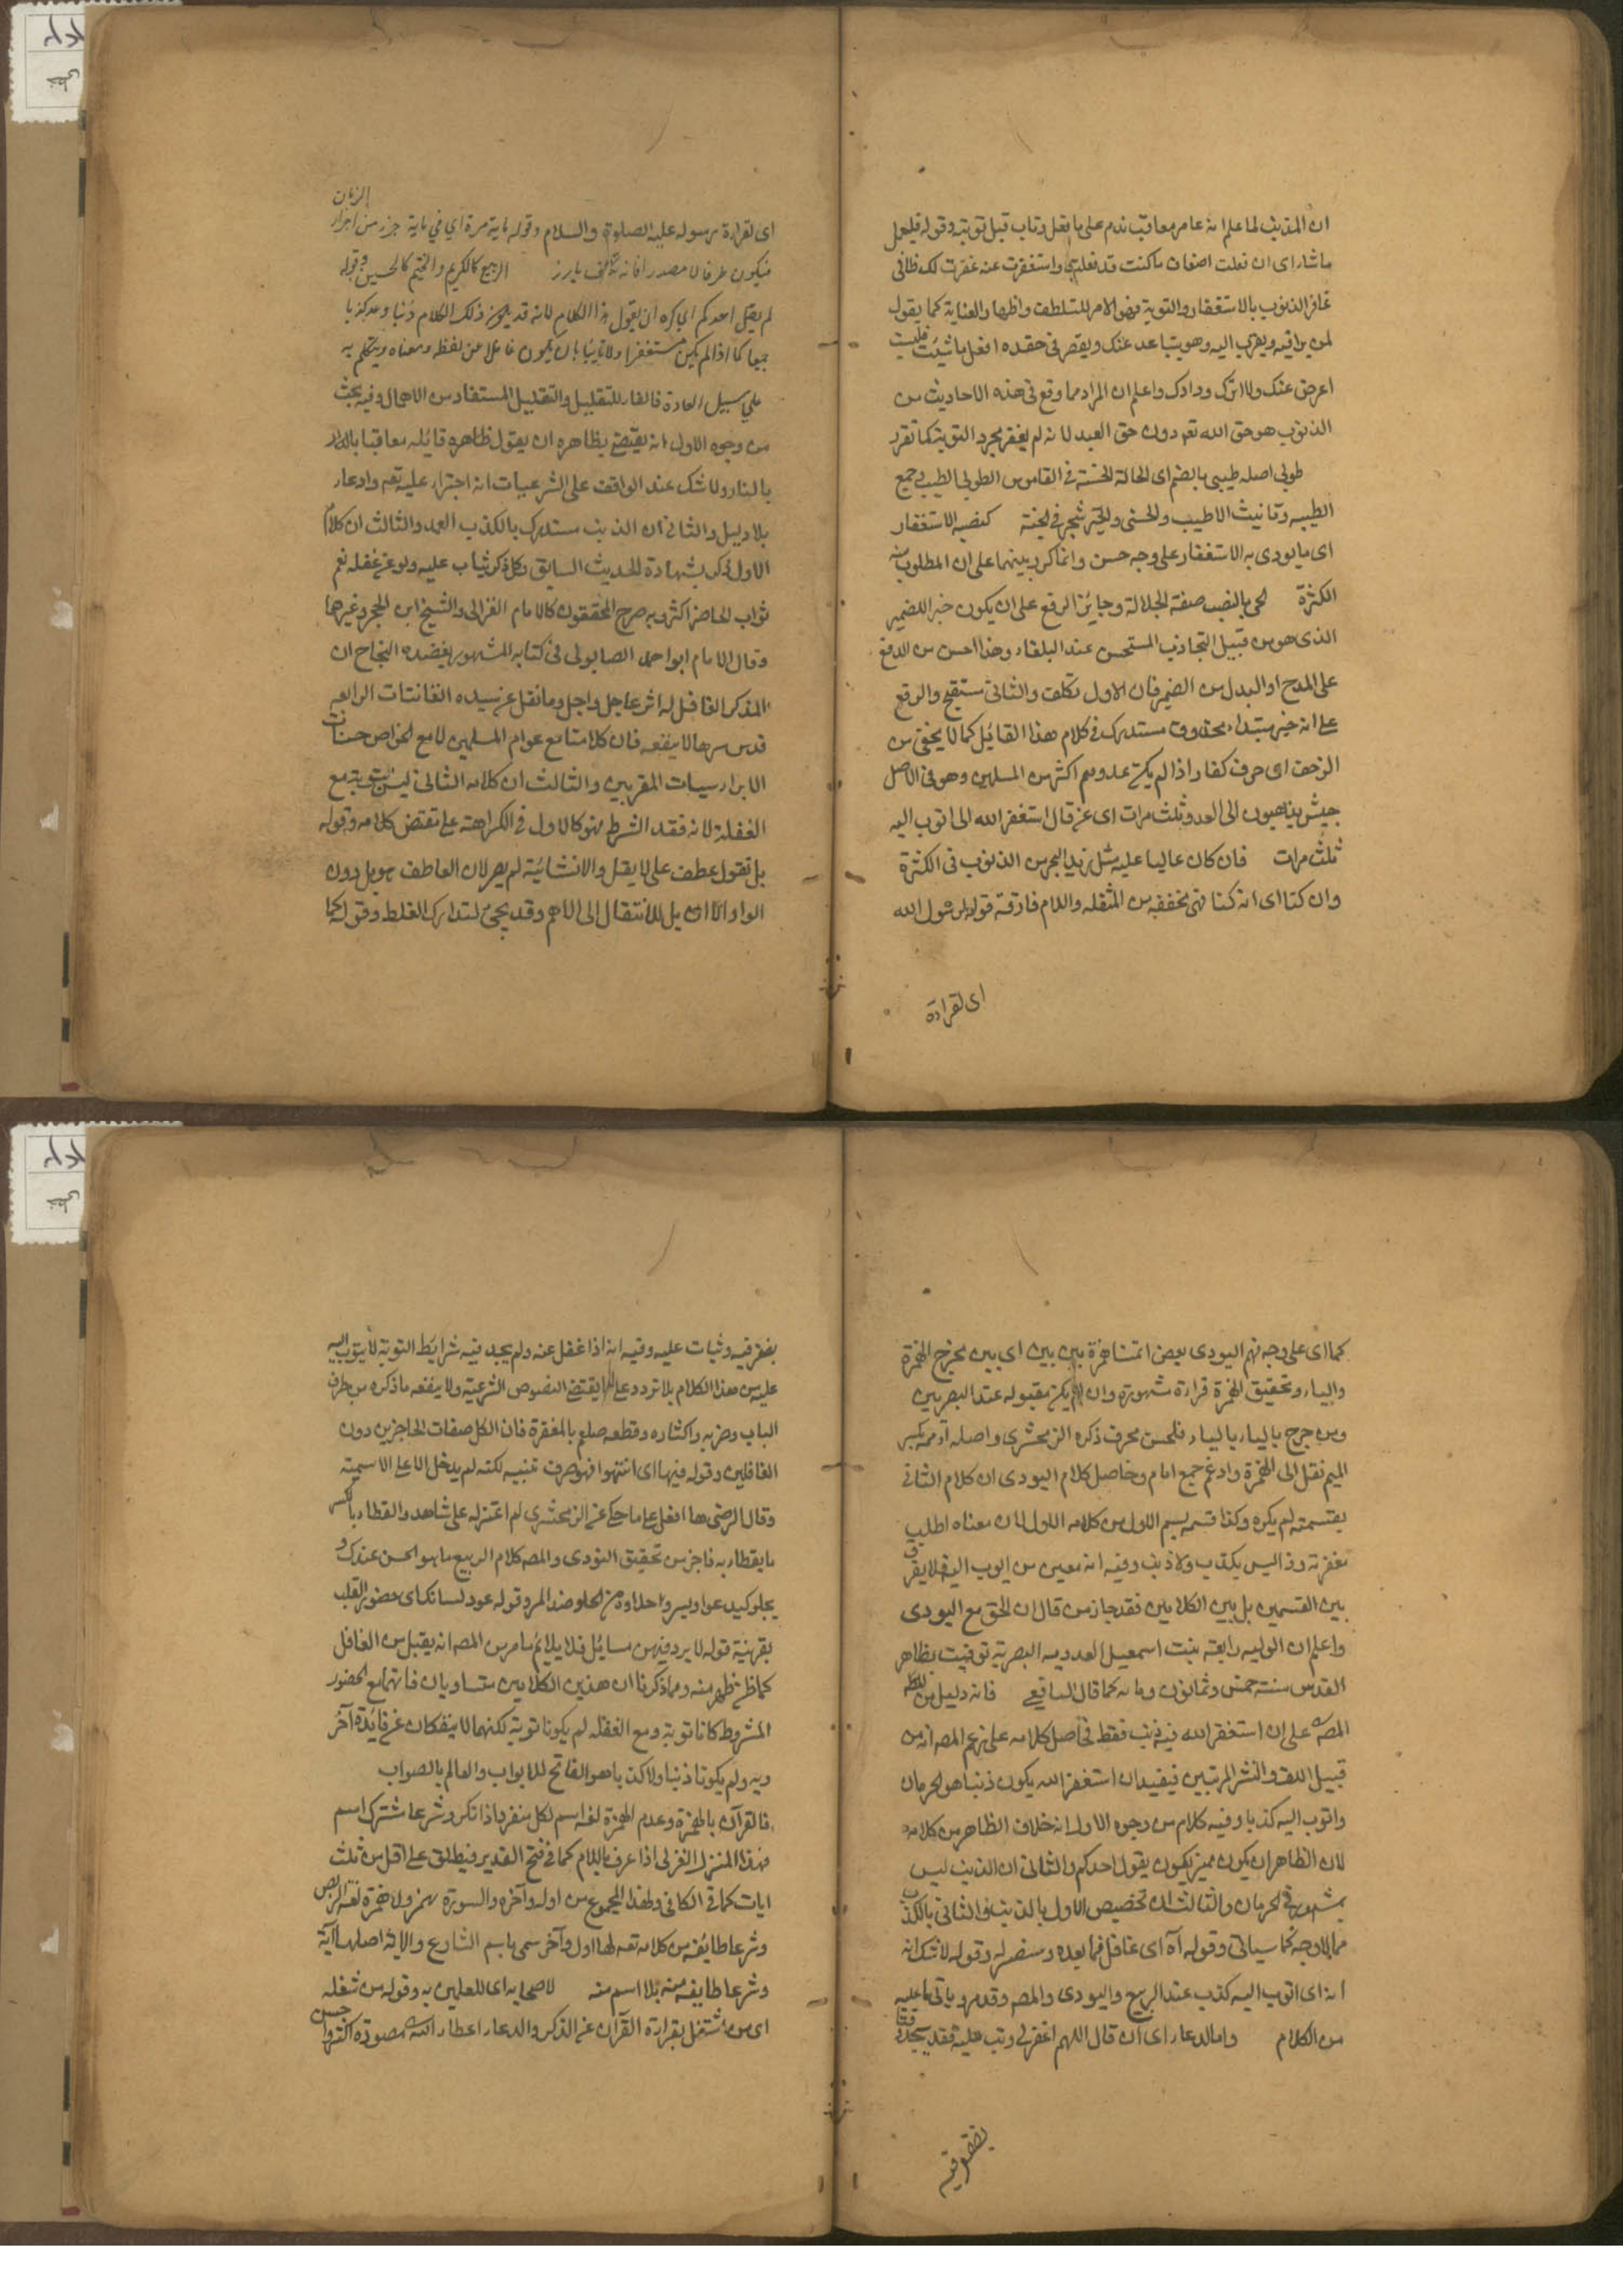 ان المذنب لما علم انه عامر معاقب ندم على ما فعل وتاب قبل توبته وقوله فليعمل
ما شاء اى ان فعلت اضعاف ما كنت قد فعلته واستغفرت عنه غفرت لك فانى
غافر الذنوب بالاستغفار والتوبة فهو الامر للتلطف واظهار العناية كما يقول
لمن يراقبه ويتقرب اليه وهو يتباعد عنك ويقصر فى حقده افعل ما شئت فلست
اعرض عنك ولا اترك ودادك واعلم ان المراد مما وقع فى هذه الاحاديث من
الذنوب هو حق الله تعم دون حق العبد لانه لم يغفر بمجرد التوبة كما تقرر
طوبى اصله طيبى بالضم اى الحالة الحسنة فى القاموس الطوبى الطيب وجمع
الطيبه وتانيث الاطيب والحسنى والخير شجر فى الجنة كنصبه الاستغفار
اى ما يودى به الاستغفار على وجه حسن وانما كرر بينهما على ان المطلوب منه
الكثرة الحى بالنصب صفة الجلالة وجايز الرفع على ان يكون خبر الضمير
الذى هو من قبيل التجاذب المستحسن عند البلغاء وهذا احسن من الدفع
على المدح او البدل من الضمير فان الاول تكلف والثانى مستقبح والرفع
على انه خبر مبتداء محذوف مستدرك فى كلام هذا القائل كما لا يخفى من
الزحف اى حرف كفار اذا لم يكن عددهم اكثر من المسلمين وهو فى الاصل
جيش يذهبون الى العدو ثلث مرات اى من قال استغفر الله الى اتوب اليه
ثلث مرات فان كان عاليا عليه مثل زبد البحر من الذنوب فى الكثرة
وان كنا اى انه كنا فهى مخففة من المثقله واللام فارقة قوله لرسول الله
اى لقراءة
الزمان
اى لقراءة رسوله عليه الصلوة والسلام وقوله ماية مرة اى فى ماية جزء من اجزاء
فيكون ظرفا لا مصدرا الربيع كالكريم والخثيم كالحسين وقوله
لم يقل احدكم اى كره ان يقول هذا الكلام لانه قد يكون ذلك الكلام ذنبا وعد كذبا
جميعا كما اذا لم يكن مستغفرا ولا تايبا بان يكون غافلا عن لفظه ومعناه ويتكلم به
على سبيل العادة فالفاء للتقليل والتقليل المستفاد من الاهمال وفيه بحث
من وجوه الاول انه يقتضى بظاهره ان يقول ظاهره قائله معاقبا بالله
بالنار ولا شك عند الواقف على الشرعيات انه اجتراء عليه تعم وادعاء
بلا دليل والثانى ان الذنب مستدرك بالكذب العمد والثالث ان كلام
الاول ذكر بشهادة الحديث السابق وكل ذكر يثاب عليه ولو عن غفله نعم
ثواب الحاضر اكثر وبه صرح المحققون كالامام الغزالى والشيخ ابن الحجر وغيرهما
وقال الامام ابو احمد الصابونى فى كتابه المشهور بقصيدة النجاح ان
المذكر الغافل له اثر عاجل واجل وما نقل عن سيده القانتات الرابعه
قدس سرها لا ينفعه فان كلامنا مع عوام المسلمين لا مع الخواص حسنات
الابرار سيات المقربين والثالث ان كلامه الثانى ليس بتوبة مع
الغفلة لانه فقد الشرط فهو كالاول فى الكراهته على مقتضى كلامه وقوله
بل تقول عطف على لا يقل والانشائية لم يضر لان العاطف هو بل دون
الواو الا ان بل للانتقال الى الاهم وقد يجئ لتدارك الغلط وقوله كما
كما اى على وجه فهم اليودى بعض ائمتنا همزة بين بين اى بين مخرج الهمزة
والياء وتحقيق الهمزة قراءة مشهورة وان لم يكن مقبوله عند البصريين
ومن صرح بالياء فلحن محرف ذكره الزمخشرى واصله أءممة بكسر
الميم نقل الى الهمزة وادغم جمع امام وحاصل كلام اليودى ان كلام الثانى
بقسميه لم يكره وكذا قسمه بسم الاول من كلامه الاول لان معناه اطلب
مغفرته وذا ليس بكذب ولا ذنب وفيه انه معين من اتوب اليه فلا يفرق
بين القسمين بل بين الكلامين فقد جاز من قال ان الحق مع اليودى
واعلم ان الوليه رابعه بنت اسمعيل العدويه البصرية توفيت بظاهر
القدس سنة خمس وثمانون ومايه كما قال اليافعى فانه دليل من
المص على ان استغفر الله فيه ذنب فقط فحاصل كلامه على زعم المص انه من
قبيل اللف والنشر المرتبين فيفيد ان استغفر الله يكون ذنبا هو الحرمان
واتوب اليه كذبا وفيه كلام من وجوه الاول انه خلاف الظاهر من كلامه
لان الظاهر ان يكون مميز ليكون يقول احدكم والثانى ان الذنب ليس
بمشهور فى الحرمان والثالث ان تخصيص الاول بالذنب والثانى بالكذب
مما لا وجه كما سياتى وقوله آه اى غافل فما بعده ومفسر له وقوله لا شك انه
انه اى اتوب اليه كذب عند الربيع واليودى والمص وقد مر وياتى ما عليه
من الكلام واما الدعاء اى ان قال اللهم اغفر لى وتب عليه فقد
يضر فيه
يضر فيه وثبات عليه وفيه انه اذا غفل عنه ولم يجد فيه شرايط التوبة لا يتوب اليه
عليه من هذا الكلام بلا تردد على ما يقتضى النصوص الشرعية ولا ينفعه ما ذكره من طرف
الباب وضربه واكثاره وقطعه صلعم بالمغفرة فان الكل صفات الحاجزين دون
الغافلين وقوله فيها اى انتهوا فها حرف تنبيه لكنه لم يدخل الا على الاسمية
وقال الرضى ها افعل على ما حكى عن الزمخشرى لم اعثر له على شاهد والقطا بالكسر
ما يقطار به فاجز من تحقيق اليودى والمص كلام الربيع ما هو الحسن عندك و
يحلو كيدعوا ويسروا حلاوة من الحلو ضد المر وقوله عود لسانك اى حضور القلب
بقرينة قوله لا يرد فيهن مسائل فلا يلايم ما مر من المص انه يقبل من الغافل
كما ظهر منه ومما ذكرنا ان هذين الكلامين متساويان فانهما مع الحضور
المشروط كانا توبة ومع الغفله لم يكونا توبة لكنهما لا ينفكان عن فائدة آخر
وبه ولم يكونا ذنبا ولا كذبا وهو الفاتح للابواب والعالم بالصواب
فالقرآن بالهمزة وعدم الهمزة لغه اسم لكل منفرد اذا نكر وشرعا مشترك اسم
فهذا المنزل العربى اذا عرف باللام كما فى فتح القدير فيطلق على اقل من ثلث
ايات كما فى الكافى ولهذا المجموع من اوله وآخره والسورة بهمز ولا همزة لغه
وشرعا طايفه من كلامه تعم لها اول وآخر سمى باسم الشارع والاية اصلها آية
وشرعا طايفه منه بلا اسم منه لاصحابه اى للعاملين به وقوله من شغله
اى من اشتغل بقراءة القرآن عن الذكر والدعاء اعطاه الله مقصوده اكثر واحسن